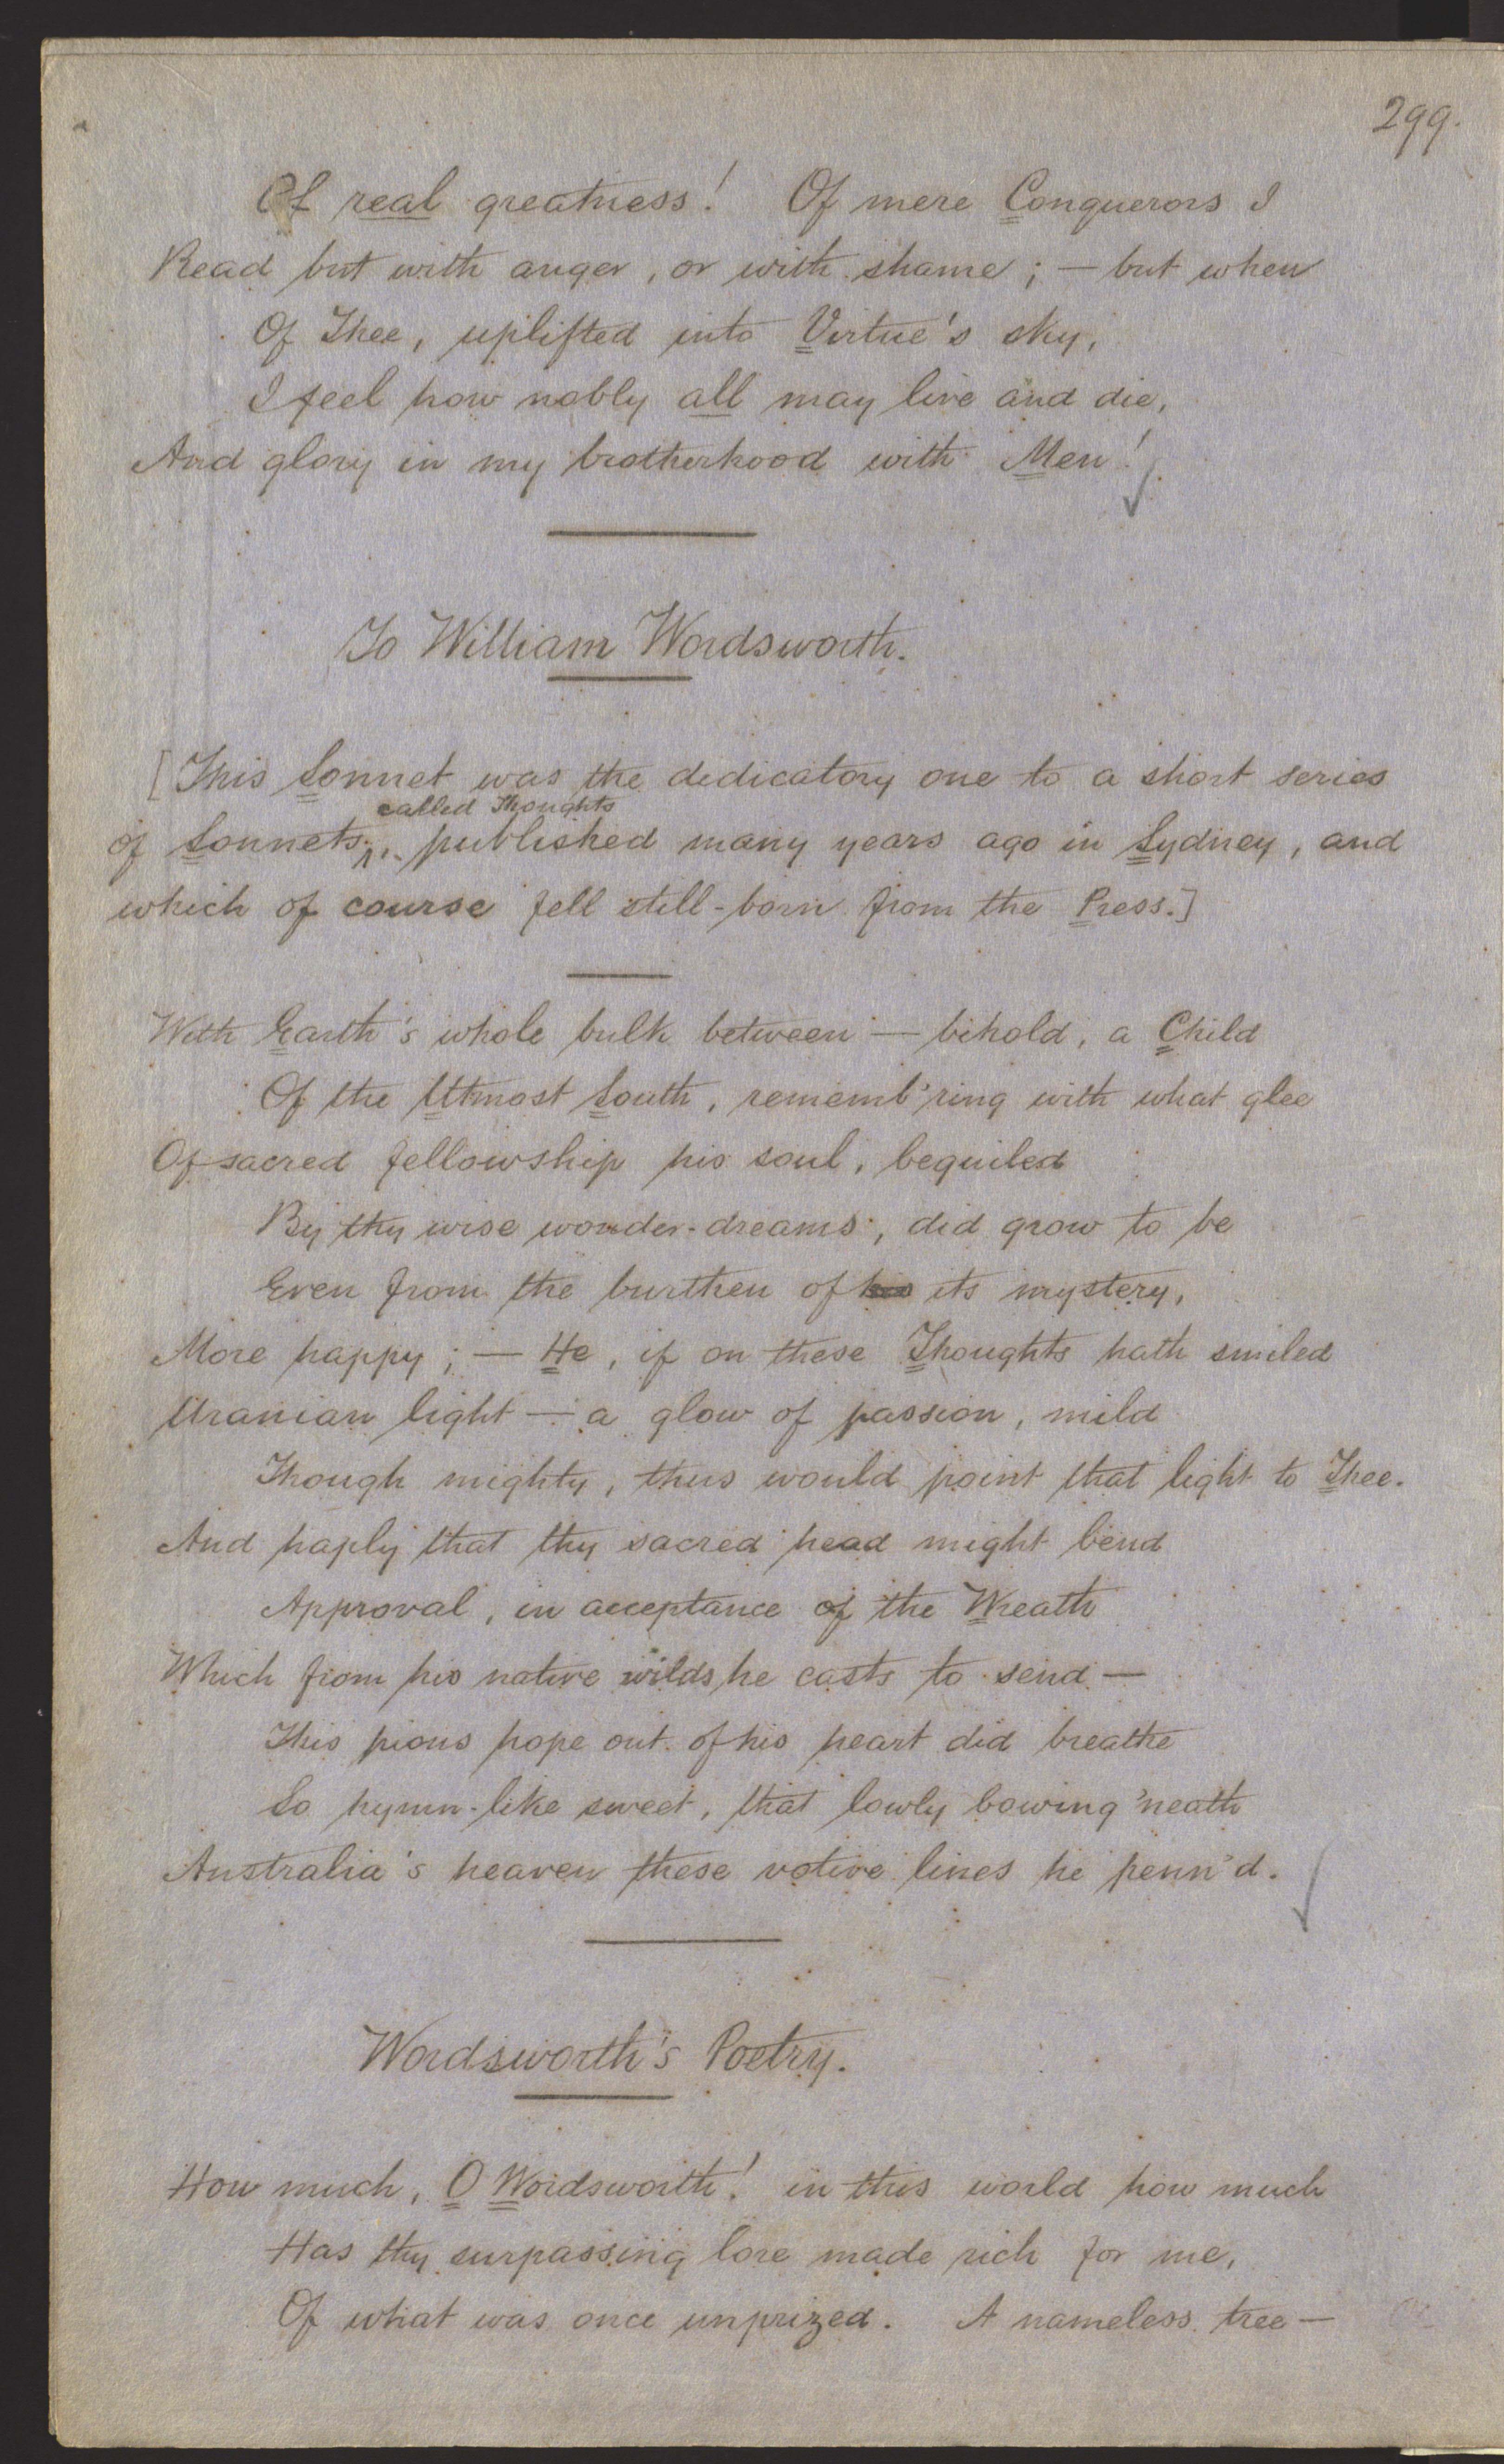 299.
Of real greatness! Of mere Conquerors I
Read but with anger, or with shame; — but when
Of Thee, uplifted into Virtue's sky,
I feel how nobly all may live and die,
And glory in my brotherhood with Men!
To William Wordsworth.
[This Sonnet was the dedicatory one to a short series
called Thoughts
of Sonnets, published many years ago in Sydney, and
which of course fell still-born from the Press.]
With Earth's whole bulk between — behold, a Child
Of the Utmost South, rememb'ring with what glee
Of sacred fellowship his soul, beguiled
By thy wise wonder-dreams, did grow to be
Even from the burthen of its mystery,
More happy; — He, if on these Thoughts hath smiled
Uranian light — a glow of passion, mild
Though mighty, thus would point that light to Thee.
And haply that thy sacred head might bend
Approval, in acceptance of the Wreath
Which from his native wilds he casts to send —
This pious hope out of his heart did breathe
So hymn-like sweet, that lowly bowing 'neath
Australia's heaven these votive lines he penn'd.
Wordsworth's Poetry.
How much, O Wordsworth! in this world how much
Has thy surpassing lore made rich for me,
Of what was once unprized. A nameless tree —